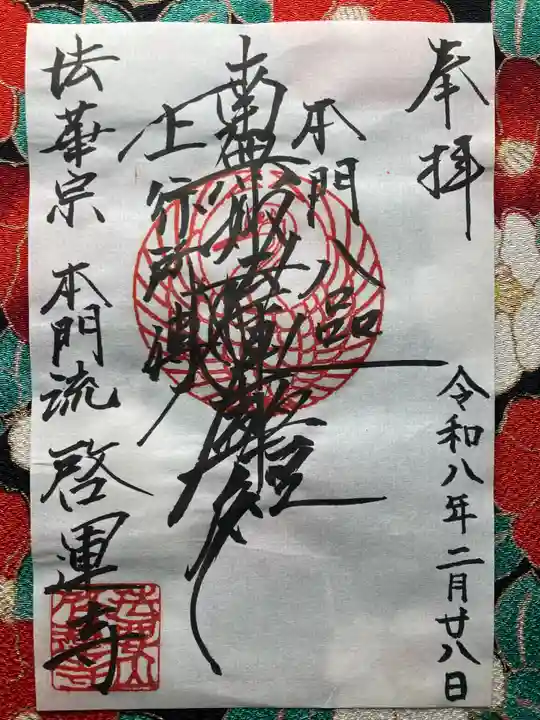 奉拝
令和八年二月廿八日
本門八品
南無妙法蓮華経
上行所傳
法華宗 本門流 啓運寺